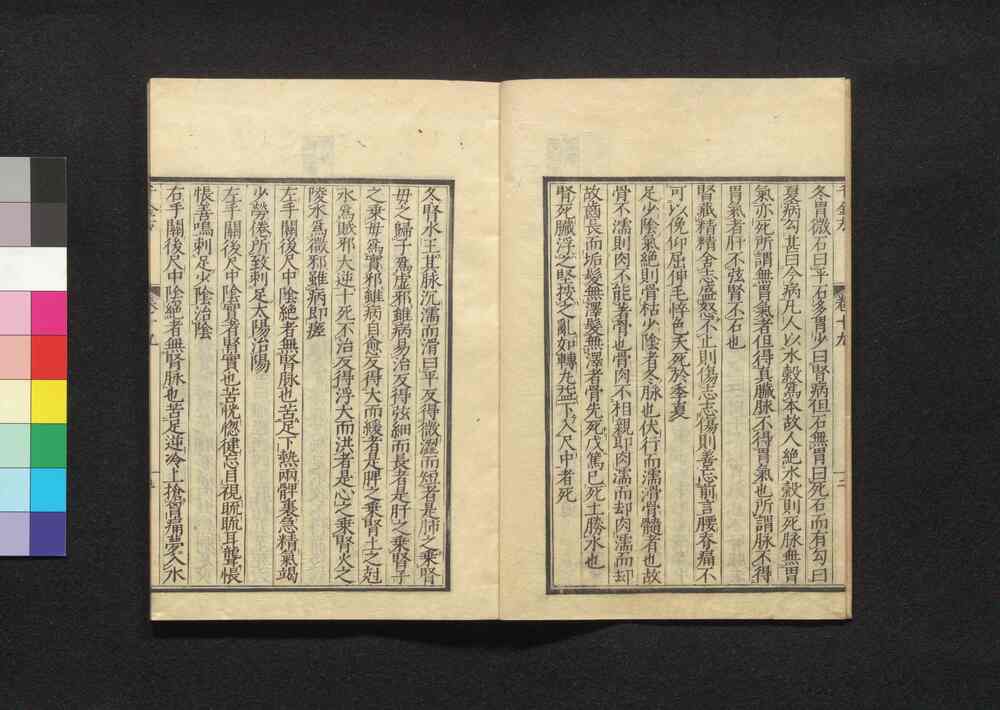 冬胃微石曰平石多胃少曰腎病但石無胃曰死石而有勾曰
夏病勾甚曰今病凡人以水穀為本故人絕水穀則死脉無胃
氣亦死所謂無胃氣者但得真臓脉不得胃氣也所謂脉不得
胃氣者肝不弦腎不石也
腎藏精精舍志盛怒不止則傷志志傷則善忘前言腰脊痛不
可以俛仰屈伸毛悴色夭死於季夏
足少陰氣絕則骨枯少陰者冬脉也伏行而濡滑骨髓者也故
骨不濡則肉不能著骨也骨肉不相親即肉濡而却肉濡而却
故齒長而垢髮無澤髮無澤者骨先死戊篤己死土勝水也
腎死臓浮之堅按之亂如轉丸益下入尺中者死
冬腎水王其脉沉濡而滑曰平反得微濇而短者是肺之乗腎
母之歸子為虛邪雖病易治反得弦細而長者是肝之乗腎子
之乗母為實邪雖病自愈反得大而緩者是脾之乗腎土之尅
水為賊邪大逆十死不治反得浮大而洪者是心之乗腎火之
陵水為微邪雖病即瘥
左手關後尺中陰絕者無腎脉也苦足下熱兩髀裏急精氣竭
少勞倦所致刺足太陽治陽
左手關後尺中陰實者腎實也苦恍惚健忘目視䀮䀮耳聾悵
悵善鳴刺足少陰治陰
右手關後尺中陰絕者無腎脉也苦足逆冷上搶胷痛夢入水